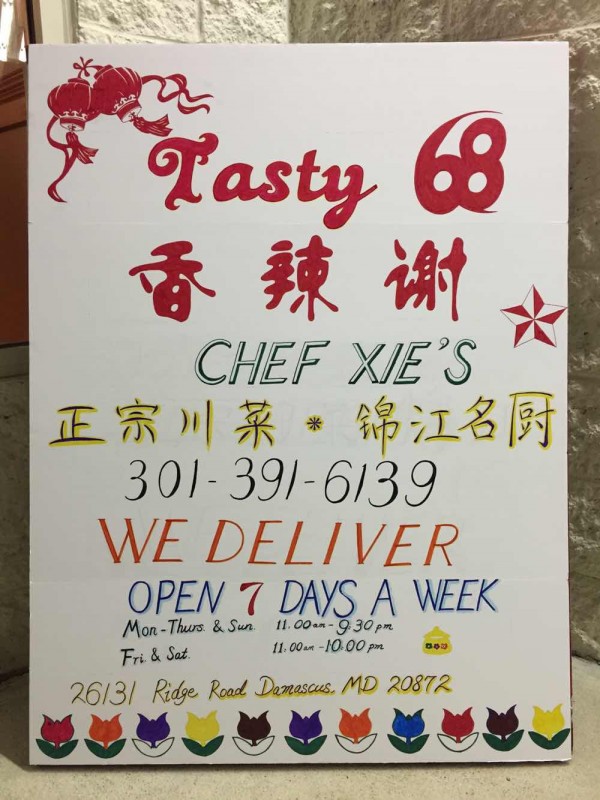 Tasty 68
香辣谢
CHEF XIE'S
正宗川菜 * 锦江名厨
301-391-6139
WE DELIVER
OPEN 7 DAYS A WEEK
Mon-Thurs. & Sun. 11:00am-9:30pm
Fri. & Sat. 11:00am-10:00pm
26131 Ridge Road Damascus, MD 20872